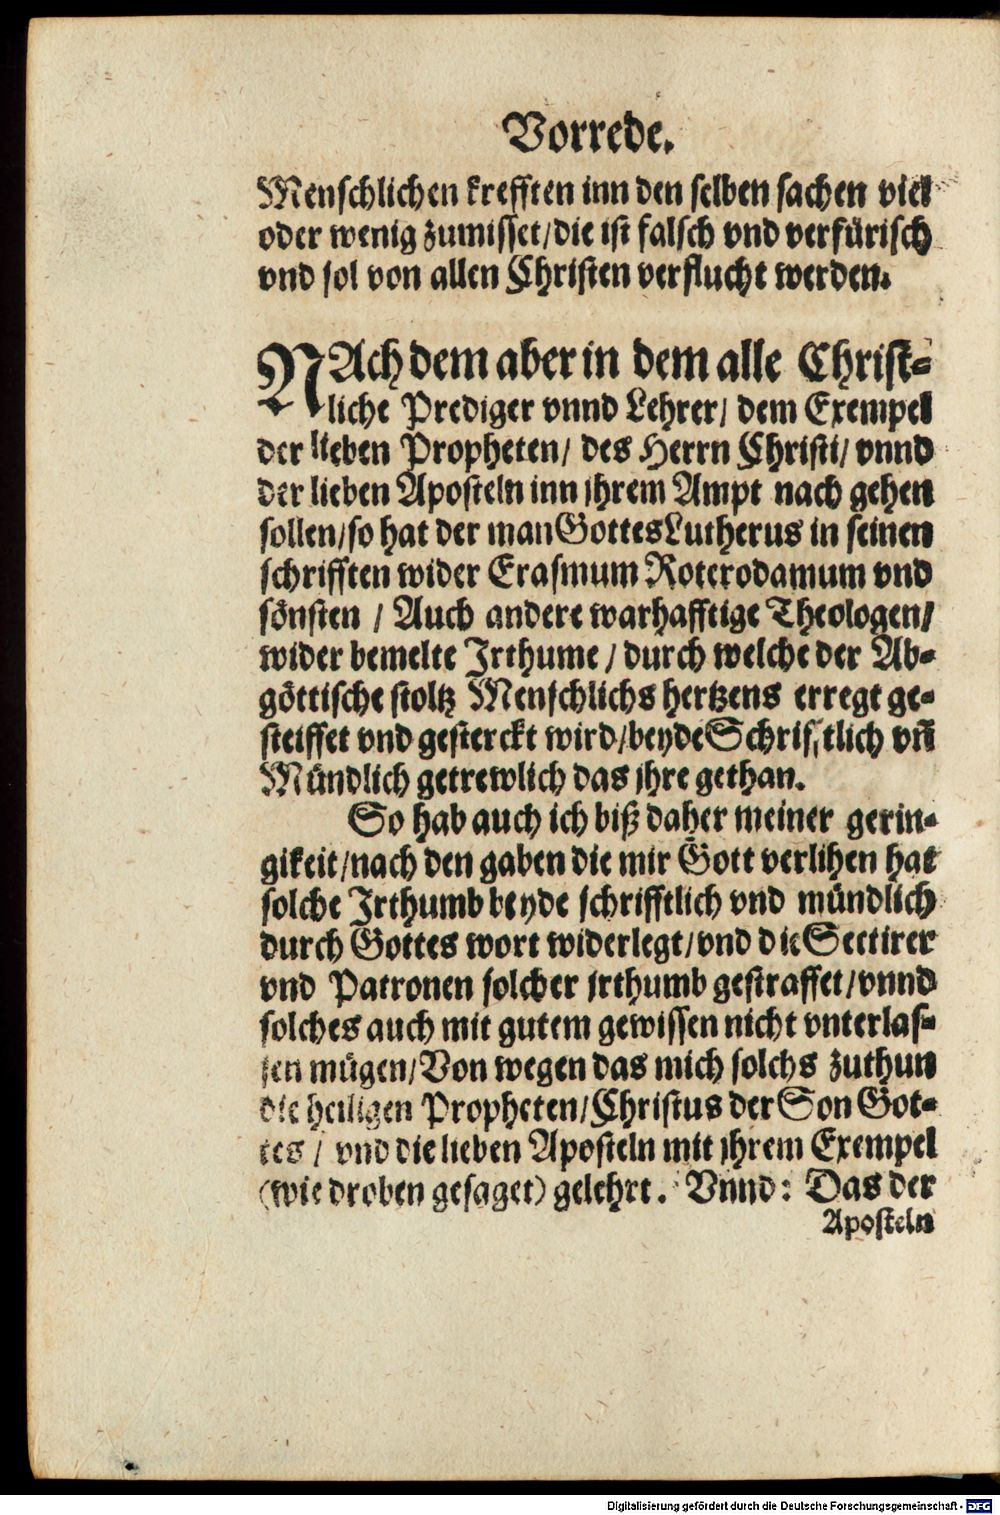 Vorrede.
Menschlichen krefften inn den selben sachen viel
oder wenig zumisset/die ist falsch vnd verfürisch
vnd sol von allen Christen verflucht werden.
NAch dem aber in dem alle Christ-
liche Prediger vnnd Lehrer/ dem Exempel
der lieben Propheten/ des Herrn Christi/ vnnd
der lieben Aposteln inn jhrem Ampt nach gehen
sollen/so hat der man Gottes Lutherus in seinen
schrifften wider Erasmum Roterodamum vnd
sönsten / Auch andere warhafftige Theologen/
wider bemelte Irthume / durch welche der Ab-
göttische stoltz Menschlichs hertzens erregt ge-
steiffet vnd gesterckt wird/beyde Schrifftlich vn̄
Mündlich getrewlich das jhre gethan.
So hab auch ich biß daher meiner gerin-
gikeit/nach den gaben die mir Gott verlihen hat
solche Irthumb beyde schrifftlich vnd mündlich
durch Gottes wort widerlegt/vnd die Sectirer
vnd Patronen solcher jrthumb gestraffet/vnnd
solches auch mit gutem gewissen nicht vnterlas-
sen mügen/Von wegen das mich solchs zuthun
die heiligen Propheten/Christus der Son Got-
tes / vnd die lieben Aposteln mit jhrem Exempel
(wie droben gesaget) gelehrt. Vnnd: Das der
Aposteln
Digitalisierung gefördert durch die Deutsche Forschungsgemeinschaft - DFG